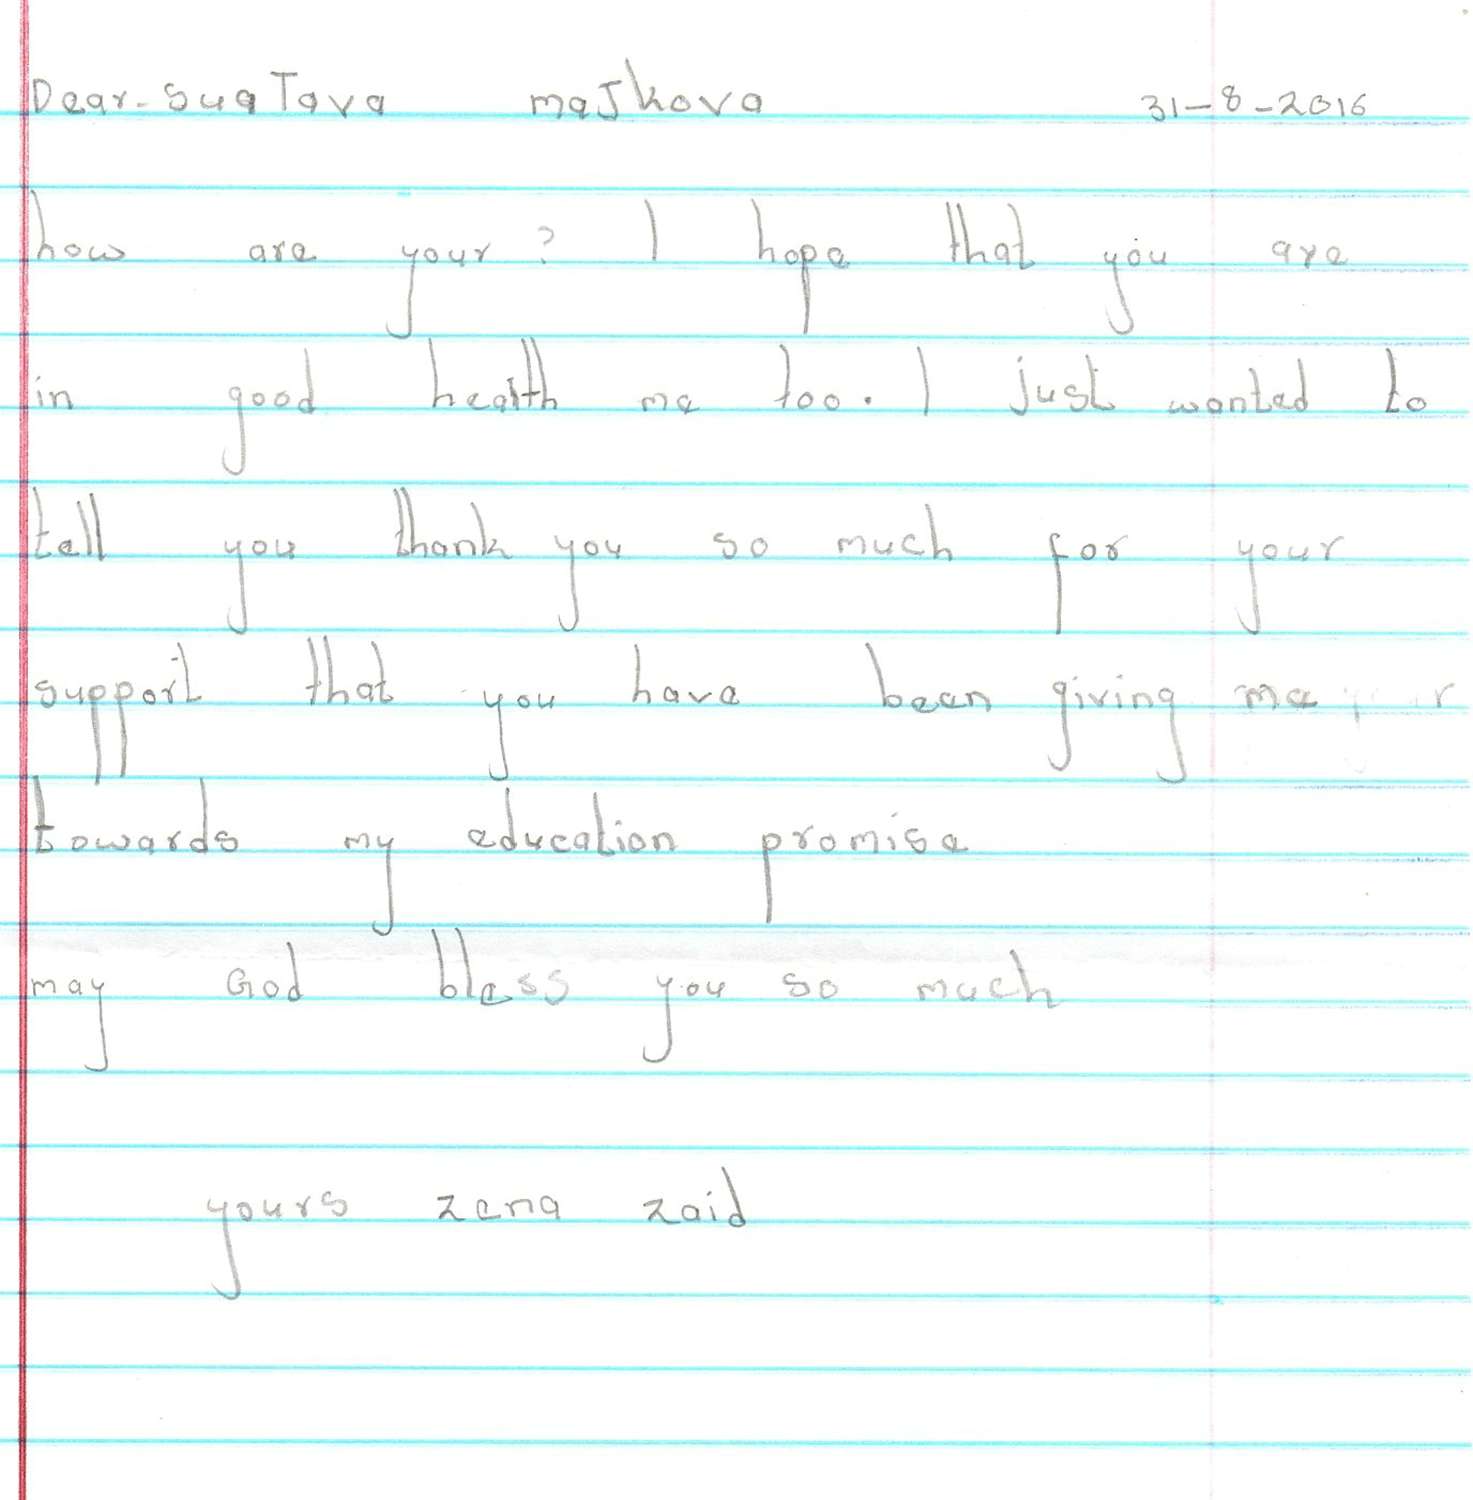 Dear- SuaTava maJkova 31-8-2016
how are your? I hope that you are
in good health me too. I just wanted to
tell you thank you so much for your
support that you have been giving me
towards my education promise
may God bless you so much
yours zena zaid